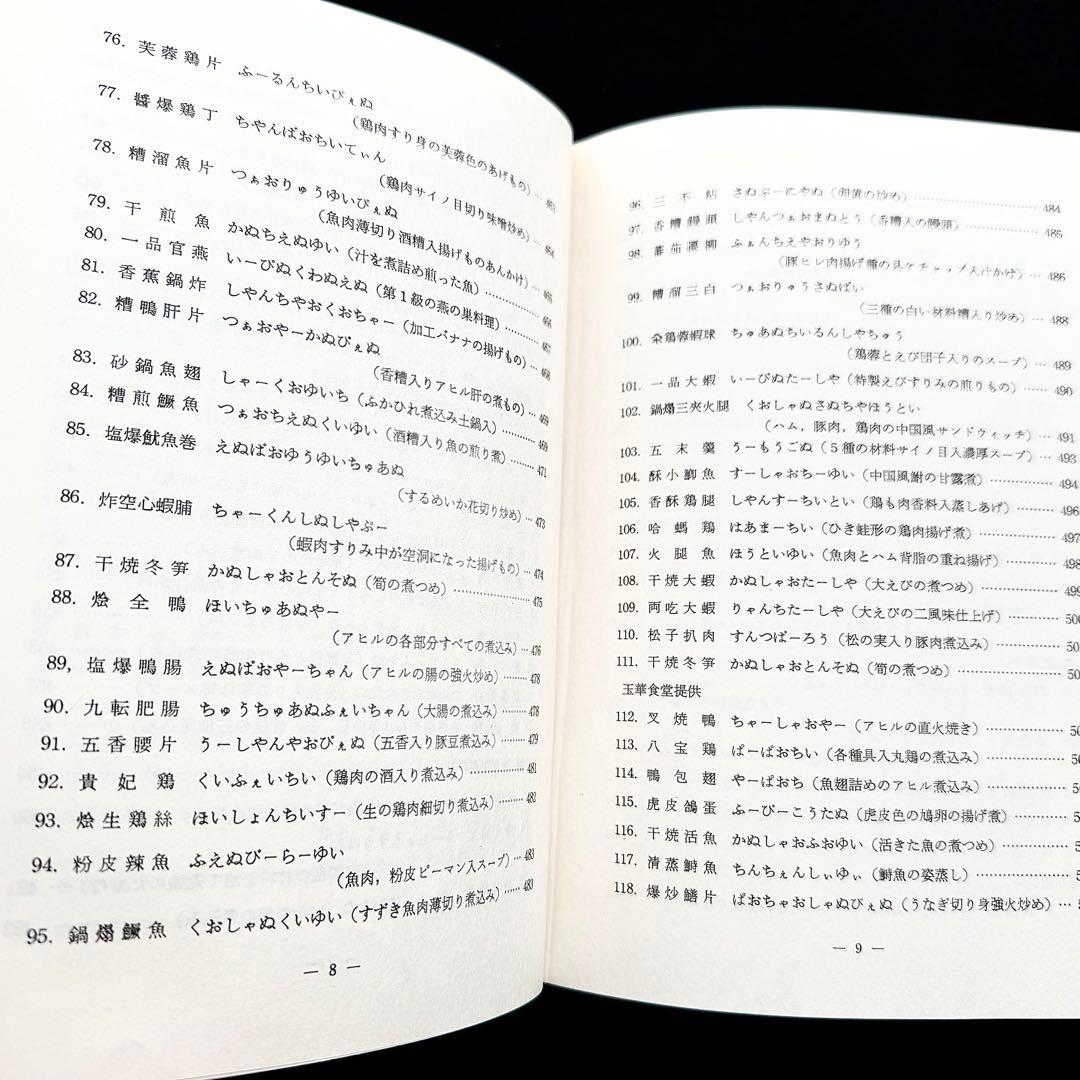 76. 芙蓉鶏片 ふーるんちいぴぇぬ
(鶏肉すり身の芙蓉色のあげもの)…
77. 醬爆鶏丁 ちやんぱおちいてぃん
(鶏肉サイノ目切り味噌炒め)… 464
78. 糟溜魚片 つぁおりゅうゆいぴぇぬ
(魚肉薄切り酒糟入揚げものあんかけ)… 465
79. 干煎魚 かぬちえぬゆい (汁を煮詰め煎った魚)……… 466
80. 一品官燕 いーぴぬくわぬえぬ (第1級の燕の巣料理)……… 467
81. 香蕉鍋炸 しやんちやおくおちゃー (加工バナナの揚げもの)… 468
82. 糟鴨肝片 つぁおやーかぬぴぇぬ
(香糟入りアヒル肝の煮もの)… 469
83. 砂鍋魚翅 しゃーくおゆいち (ふかひれ煮込み土鍋入)……… 469
84. 糟煎鱖魚 つぁおちえぬくいゆい (酒糟入り魚の煎り煮)……… 471
85. 塩爆魷魚巻 えぬぱおゆうゆいちゅあぬ
(するめいか花切り炒め)… 473
86. 炸空心蝦脯 ちゃーくんしぬしやぷー
(蝦肉すりみ中が空洞になった揚げもの)… 474
87. 干焼冬筍 かぬしゃおとんそぬ (筍の煮つめ)……… 475
88. 燴全鴨 ほいちゅあぬやー
(アヒルの各部分すべての煮込み)… 476
89, 塩爆鴨腸 えぬぱおやーちゃん (アヒルの腸の強火炒め)……… 478
90. 九転肥腸 ちゅうちゅあぬふぇいちゃん (大腸の煮込み)……… 478
91. 五香腰片 うーしやんやおぴぇぬ (五香入り豚豆煮込み)……… 479
92. 貴妃鶏 くいふぇいちい (鶏肉の酒入り煮込み)……… 481
93. 燴生鶏絲 ほいしょんちいすー (生の鶏肉細切り煮込み)……… 482
94. 粉皮辣魚 ふえぬぴーらーゆい
(魚肉,粉皮ピーマン入スープ)… 483
95. 鍋爆鱖魚 くおしゃぬくいゆい (すずき魚肉薄切り煮込み)……… 483
— 8 —
96. 三不粘 さぬぷーにやぬ (卵黄の炒め)……… 484
97. 香糟饅頭 しやんつぁおまぬとう (香糟入の饅頭)……… 485
98. 蕃茄腰柳 ふぁんちえやおりゆう
(豚ヒレ肉揚げ種の具ケチャップ入汁かけ)… 486
99. 糟溜三白 つぁおりゅうさぬぱい
(三種の白い材料糟入り炒め)… 488
100. 汆鶏蓉蝦球 ちゅあぬちいるんしやちゅう
(鶏蓉とえび団子入りのスープ)… 489
101. 一品大蝦 いーぴぬたーしや (特製えびすりみの煎りもの)……… 490
102. 鍋爆三夾火腿 くおしゃぬさぬちやほうとい
(ハム,豚肉,鶏肉の中国風サンドウィッチ)… 491
103. 五末羹 うーもうごぬ (5種の材料サイノ目入濃厚スープ)… 493
104. 酥小鯽魚 すーしゃおちーゆい (中国風鮒の甘露煮)……… 494
105. 香酥鶏腿 しやんすーちいとい (鶏も肉香料入蒸しあげ)……… 496
106. 哈螞鶏 はあまーちい (ひき蛙形の鶏肉揚げ煮)……… 497
107. 火腿魚 ほうといゆい (魚肉とハム背脂の重ね揚げ)……… 498
108. 干焼大蝦 かぬしゃおたーしや (大えびの煮つめ)……… 499
109. 両吃大蝦 りゃんちたーしや (大えびの二風味仕上げ)……… 50
110. 松子扒肉 すんつぱーろう (松の実入り豚肉煮込み)……… 50
111. 干焼冬筍 かぬしゃおとんそぬ (筍の煮つめ)……… 50
玉華食堂提供
112. 叉焼鴨 ちゃーしゃおやー (アヒルの直火焼き)……… 50
113. 八宝鶏 ぱーぱおちい (各種具入丸鶏の煮込み)……… 50
114. 鴨包翅 やーぱおち (魚翅詰めのアヒル煮込み)……… 5
115. 虎皮鴿蛋 ふーぴーこうたぬ (虎皮色の鳩卵の揚げ煮)……… 5
116. 干焼活魚 かぬしゃおふおゆい (活きた魚の煮つめ)……… 5
117. 清蒸鰣魚 ちんちぇんしぃゆぃ (鰣魚の姿蒸し)……… 5
118. 爆炒鱔片 ぱおちゃおしゃぬぴぇぬ (うなぎ切り身強火炒め)…
— 9 —